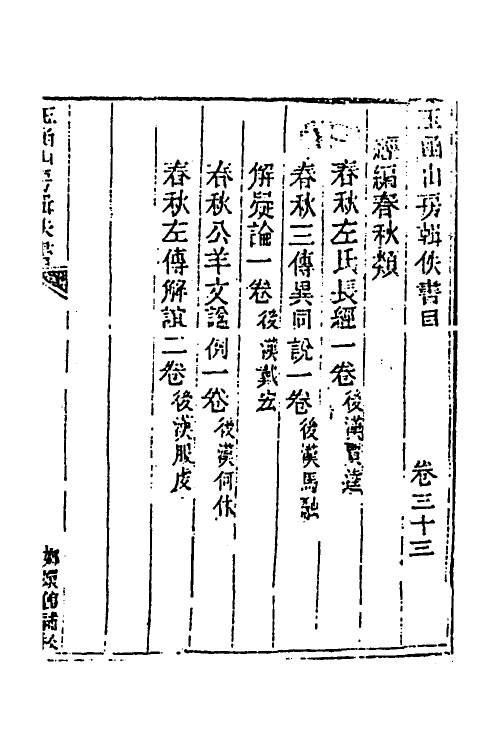 玉函山房輯佚書目　卷三十三
經編春秋類
春秋左氏長經一卷後漢賈逵
春秋三傳異同說一卷後漢馬融
解疑論一卷後漢戴宏
春秋公羊文諡例一卷後漢何休
春秋左傳解誼二卷後漢服虔
玉函山房輯佚書
嫏嬛館補校